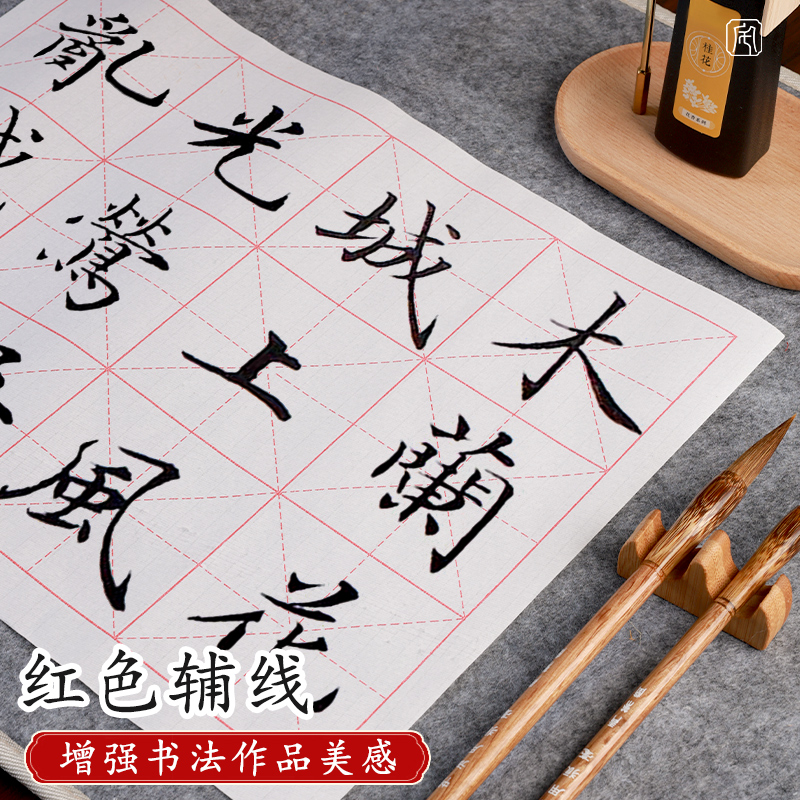 木蘭花
城上風
光鶯
亂
桂花
红色辅线
增强书法作品美感